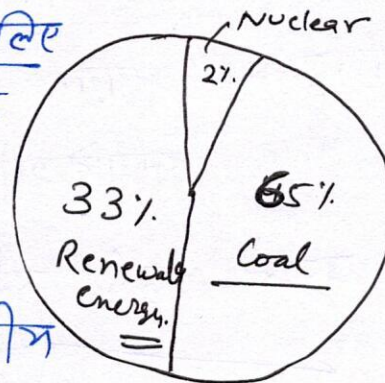 लिए
Nuclear
2%.
33%.
Renewable
energy.
65%.
Coal